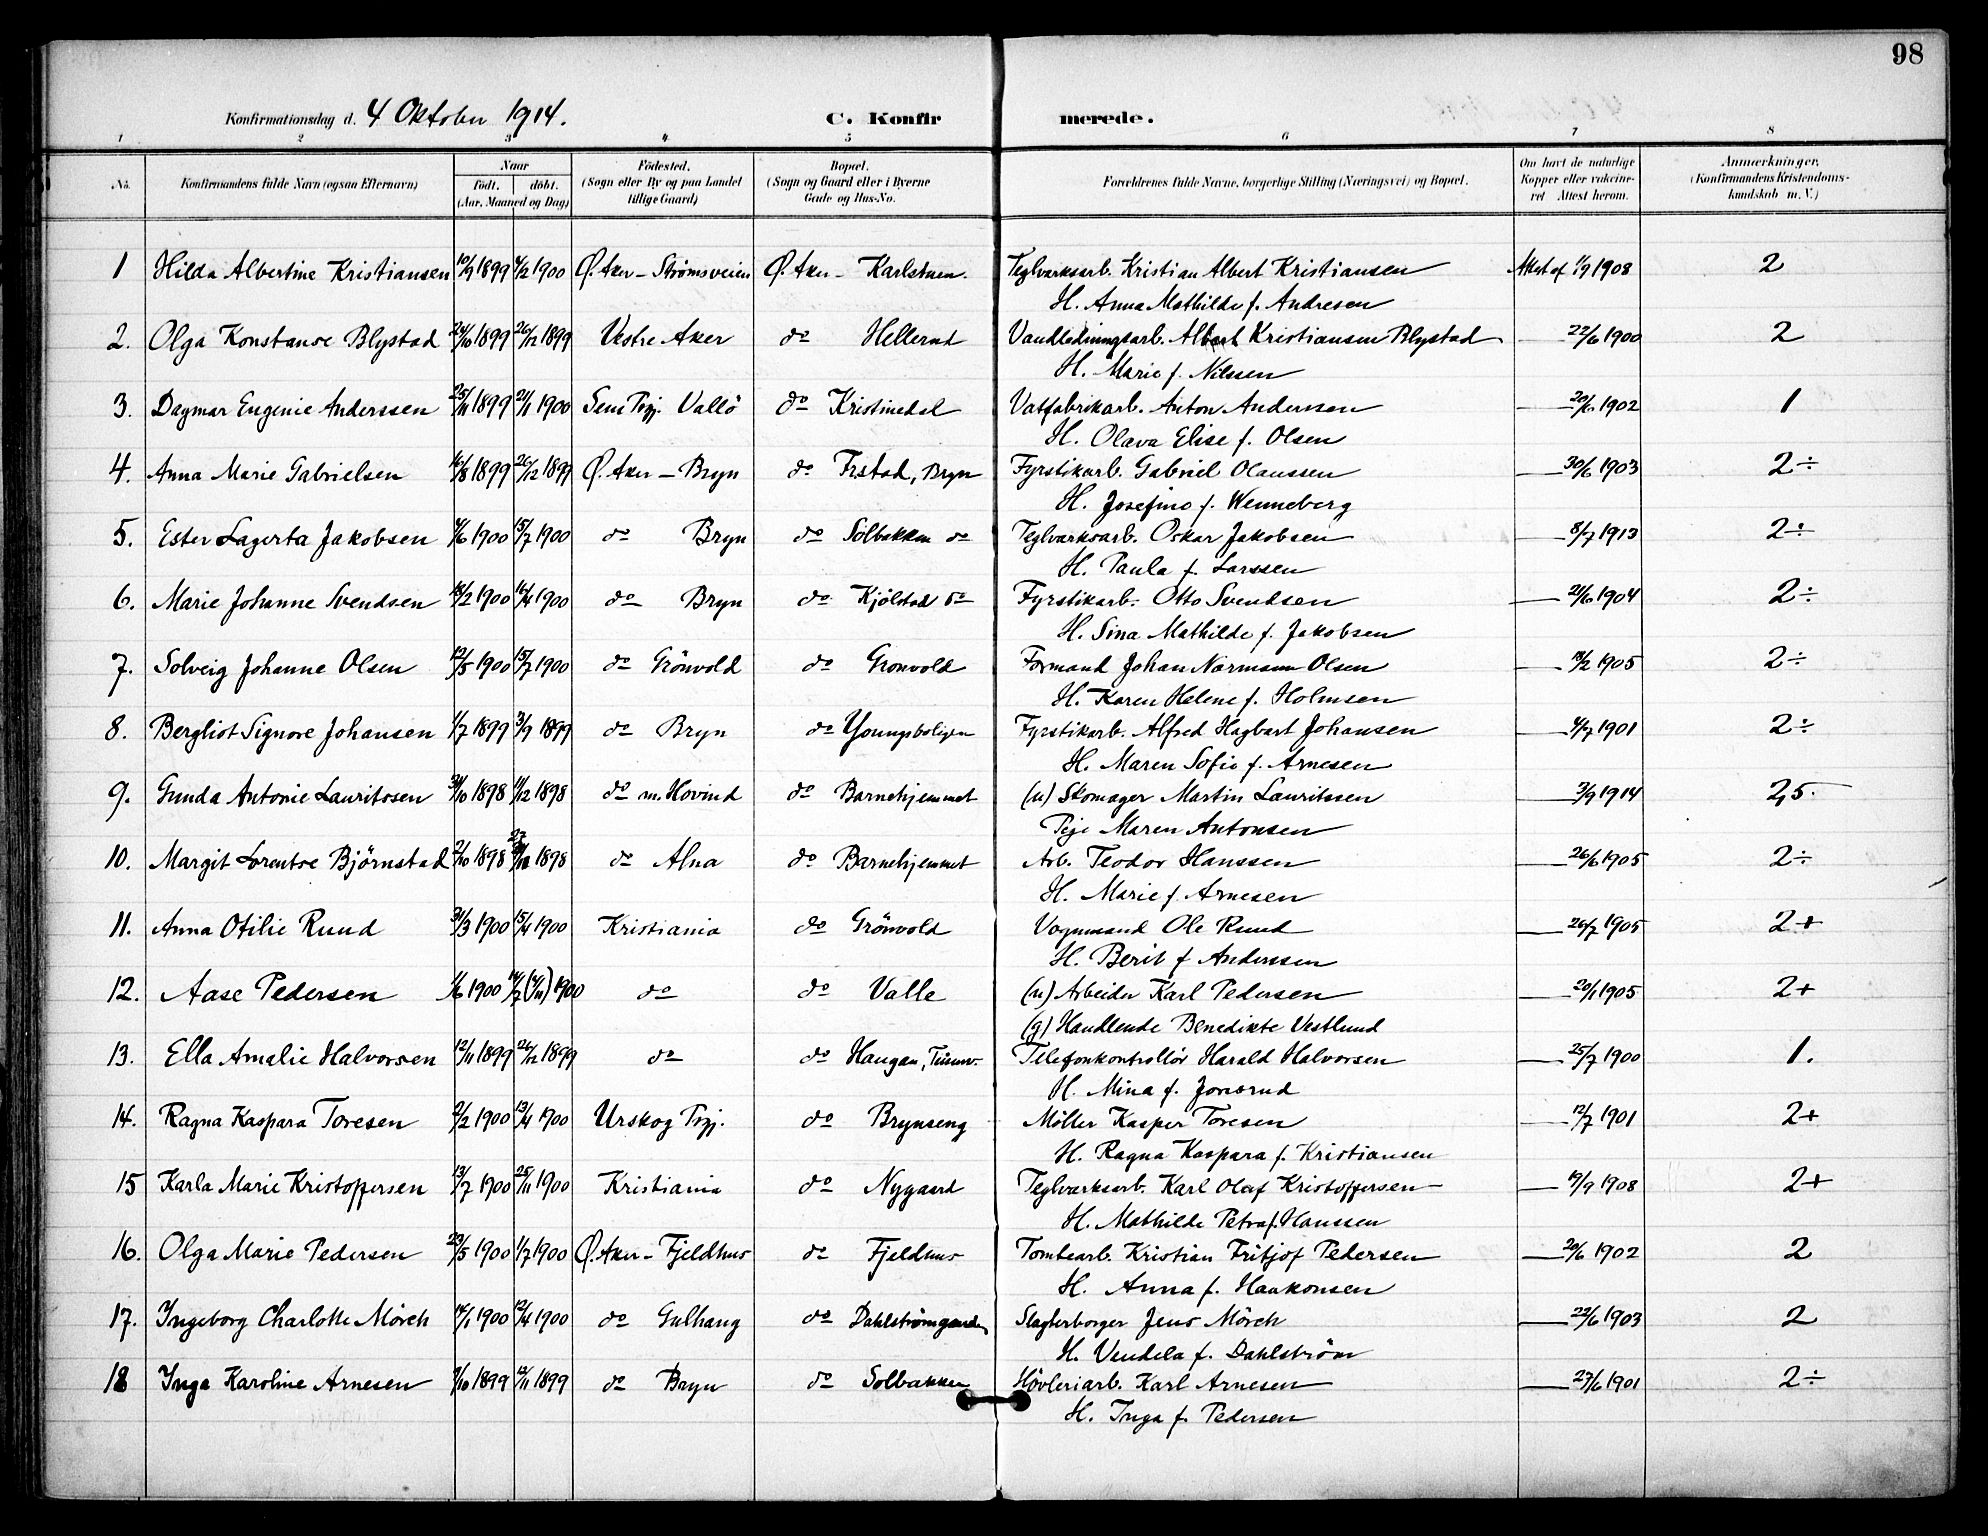 98
Konfirmationsdag d. 4 Oktober 1914. C. Konfirmerede.
1 2 3 4 5 6 7 8
No. Konfirmandens fulde Navn (ogsaa Efternavn) Naar födt. döbt. (Aar, Maaned og Dag) Födested. (Sogn eller By og paa Landet tillige Gaard) Bopæl. (Sogn og Gaard eller i Byerne Gade og Hus-No. Forældrenes fulde Navne, borgerlige Stilling (Næringsvei) og Bopæl. Om havt de naturlige Kopper eller vakcineret Attest herom. Anmærkninger, (Konfirmandens Kristendomskundskab m. V.)
1 Hilda Albertine Kristiansen 10/9 1899 4/2 1900 Ø. Aker - Strømsveien Ø. Aker - Teglværksarb. Kristian Albert Kristiansen Attest af 1/9 1908 2
H. Anna Mathilde f. Andresen
2. Olga Konstanse Blystad 24/10 1899 26/12 1899 Vestre Aker do Hellerud Vandledningsarb. Albert Kristiansen Blystad — 22/6 1900 2
H. Marie f. Nilssen
3. Dagmar Eugenie Anderssen 25/11 1899 21/1 1900 Sem Pgj. Vallö do Kristinedal Vatfabrikarb. Anton Anderssen — 20/6 1902 1
H. Olava Elise f. Olsen
4. Anna Marie Gabrielsen 16/8 1899 26/12 1899 Ø. Aker - Bryn do Frstad, Bryn Fyrstikarb. Gabriel Olaussen — 30/6 1903 2÷
H. Josefine f. Wenneberg
5. Ester Lagerta Jakobsen 4/6 1900 15/7 1900 do Bryn do Solbakken do Teglværksarb. Oskar Jakobsen — 8/7 1913 2÷
H. Paula f. Larssen
6. Marie Johanne Svendsen 18/2 1900 16/4 1900 do Bryn do Kjölstad do Fyrstikarb. Otto Svendsen — 21/6 1904 2÷
H. Sina Mathilde f. Jakobsen
7. Solveig Johanne Olsen 12/5 1900 15/7 1900 do Grönvold do Gronvold Formand Johan Normann Olsen — 18/2 1905 2÷
H. Karen Helene f. Holmsen
8. Bergliot Signore Johansen 1/7 1899 3/9 1899 do Bryn do Youngsboligen Fyrstikarb. Alfred Hagbart Johansen — 4/7 1901 2÷
H. Maren Sofie f. Arnesen
9. Gunda Antonie Lauritssen 31/10 1898 11/12 1898 do m. Hovind do Barnehjemmet (u) Skomager Martin Lauritssen — 3/9 1914 2,5.
Pige Maren Antonsen
10. Margit Lorentse Björnstad 2/10 1898 27 1898 do Alna do Barnehjemmet Arb. Teodor Hanssen — 26/6 1905 2÷
H. Marie f. Arnesen
11. Anna Otilie Ruud 31/3 1900 15/4 1900 Kristiania do Grönvold Vognmand Ole Ruud — 26/7 1905 2+
H. Berit f Anderssen
12. Aase Pedersen 1/6 1900 1900 do do Valle (u) Arbeider Karl Pedersen — 20/1 1905 2+
(g) Handlende Benedikte Vestlund
13. Ella Amalie Halvorsen 12/11 1899 26/12 1899 do do Haugan, Telefonkontrollör Harald Halvorsen — 25/7 1900 1.
H. Mina f. Jonsrud
14. Ragna Kaspara Toresen 2/2 1900 13/4 1900 Urskog Pgj. do Brynseng Möller Kasper Toresen — 12/7 1901 2+
H. Ragna Kaspara f. Kristiansen
15 Karla Marie Kristoffersen 13/7 1900 25/11 1900 Kristiania do Nygaard Teglværksarb. Karl Olaf Kristoffersen — 19/9 1908 2+
H. Mathilde Petra f. Hanssen
16. Olga Marie Pedersen 23/5 1900 1/7 1900 Ø. Aker - Fjeldhus do Fjeldhus Tomtearb. Kristian Fritjof Pedersen — 20/6 1902 2
H. Anna f. Haakonsen
17. Ingeborg Charlotte Mörch 14/1 1900 12/4 1900 do Gulhaug do Slagterborger Jens Mörch — 22/6 1903 2
H. Vendela f. Dahlström
18 Inga Karoline Arnesen 7/10 1899 12/11 1899 do Bryn do Solbakken Hövleriarb. Karl Arnesen — 27/6 1901 2÷
H. Inga f. Pedersen